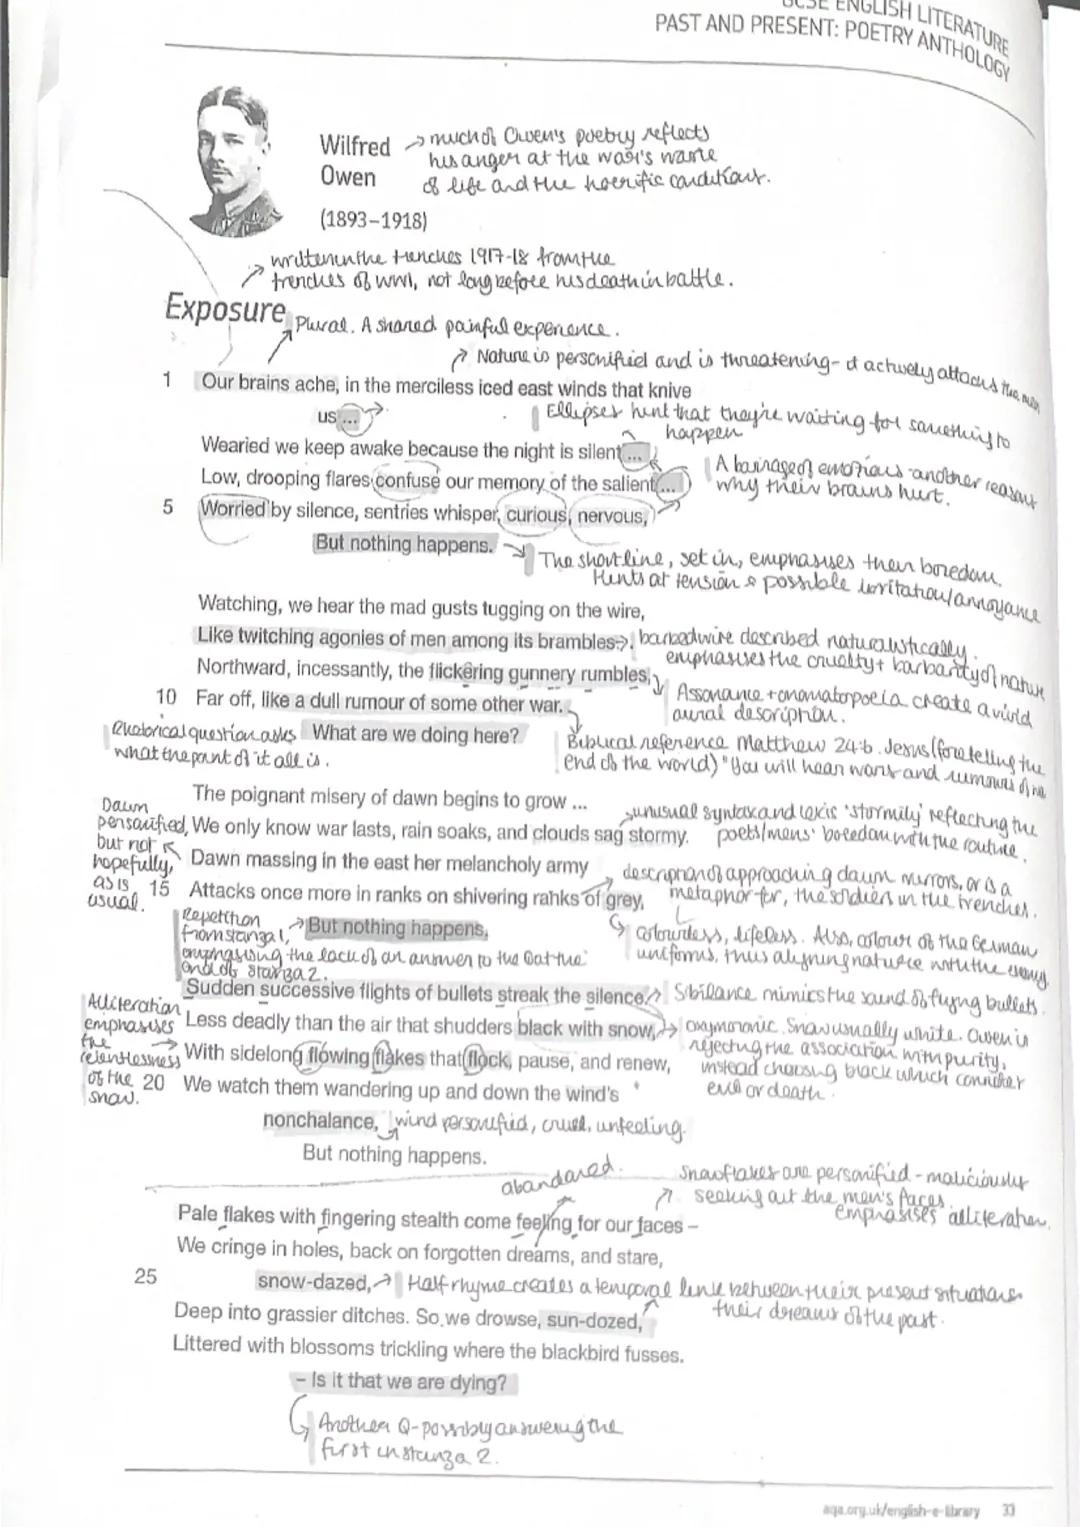 GCSE ENGLISH LITERATURE
PAST AND PRESENT: POETRY ANTHOLOGY
Wilfred
Owen
(1893–1918)
→ much of Owen's poetry reflects
his anger at the war's waste
of life and the horrific conditions.
written in the trenches 1917-18 from the
trenches of WWI, not long before his death in battle.
Exposure
Plural. A shared painful experience.
Nature is personified and is threatening - it actively attacks the men
1 Our brains ache, in the merciless iced east winds that knive
us ...
Ellipses hint that they're waiting for something to
happen
Wearied we keep awake because the night is silent ...
A barrage of emotions another reason
why their brains hurt.
Low, drooping flares confuse our memory of the salient ...
5 Worried by silence, sentries whisper, curious, nervous,
But nothing happens.
The short line, set in, emphasises their boredom.
Hints at tension & possible irritation/annoyance
Watching, we hear the mad gusts tugging on the wire,
Like twitching agonies of men among its brambles.
barbedwire described naturalistically.
emphasises the cruelty + barbarity of nature
Northward, incessantly, the flickering gunnery rumbles,
Assonance + onomatopoeia create a vivid
aural description.
10 Far off, like a dull rumour of some other war.
Biblical reference Matthew 24:6. Jesus (foretelling the
end of the world) "You will hear wars and rumours of
Rhetorical question asks
what the point of it all is.
What are we doing here?
The poignant misery of dawn begins to grow ...
unusual syntax and lexis 'stormily' reflecting the
poets/mens' boredom with the routine.
Dawn
personified,
but not
hopefully,
as is
usual.
We only know war lasts, rain soaks, and clouds sag stormy.
Dawn massing in the east her melancholy army
description of approaching dawn mirrors, or is a
metaphor for, the soldiers in the trenches.
15 Attacks once more in ranks on shivering ranks of grey,
colourless, lifeless. Also, colour of the German
uniforms, thus aligning nature with the enemy.
Repetition
from stanza 1,
emphasising the lack of an answer to the Q at the
end of stanza 2.
But nothing happens.
Sudden successive flights of bullets streak the silence.
Sibilance mimics the sound of flying bullets.
Alliteration
emphasises
the
relentlessness
of the
snow.
Less deadly than the air that shudders black with snow,
oxymoronic. Snow usually white. Owen is
rejecting the association with purity,
instead choosing black which
evil or death.
With sidelong flowing flakes that flock, pause, and renew,
20 We watch them wandering up and down the wind's
nonchalance,
wind personified, cruel, unfeeling.
But nothing happens.
abandoned.
snowflakes are personified - maliciously
seeking out the men's faces.
emphasises alliteration.
Pale flakes with fingering stealth come feeling for our faces –
We cringe in holes, back on forgotten dreams, and stare,
25 snow-dazed,
Half rhyme creates a temporal link between their present situation &
their dreams of the past.
Deep into grassier ditches. So we drowse, sun-dozed,
Littered with blossoms trickling where the blackbird fusses.
– Is it that we are dying?
Another Q - possibly answering the
first in stanza 2.
aqa.org.uk/english-e-library 33